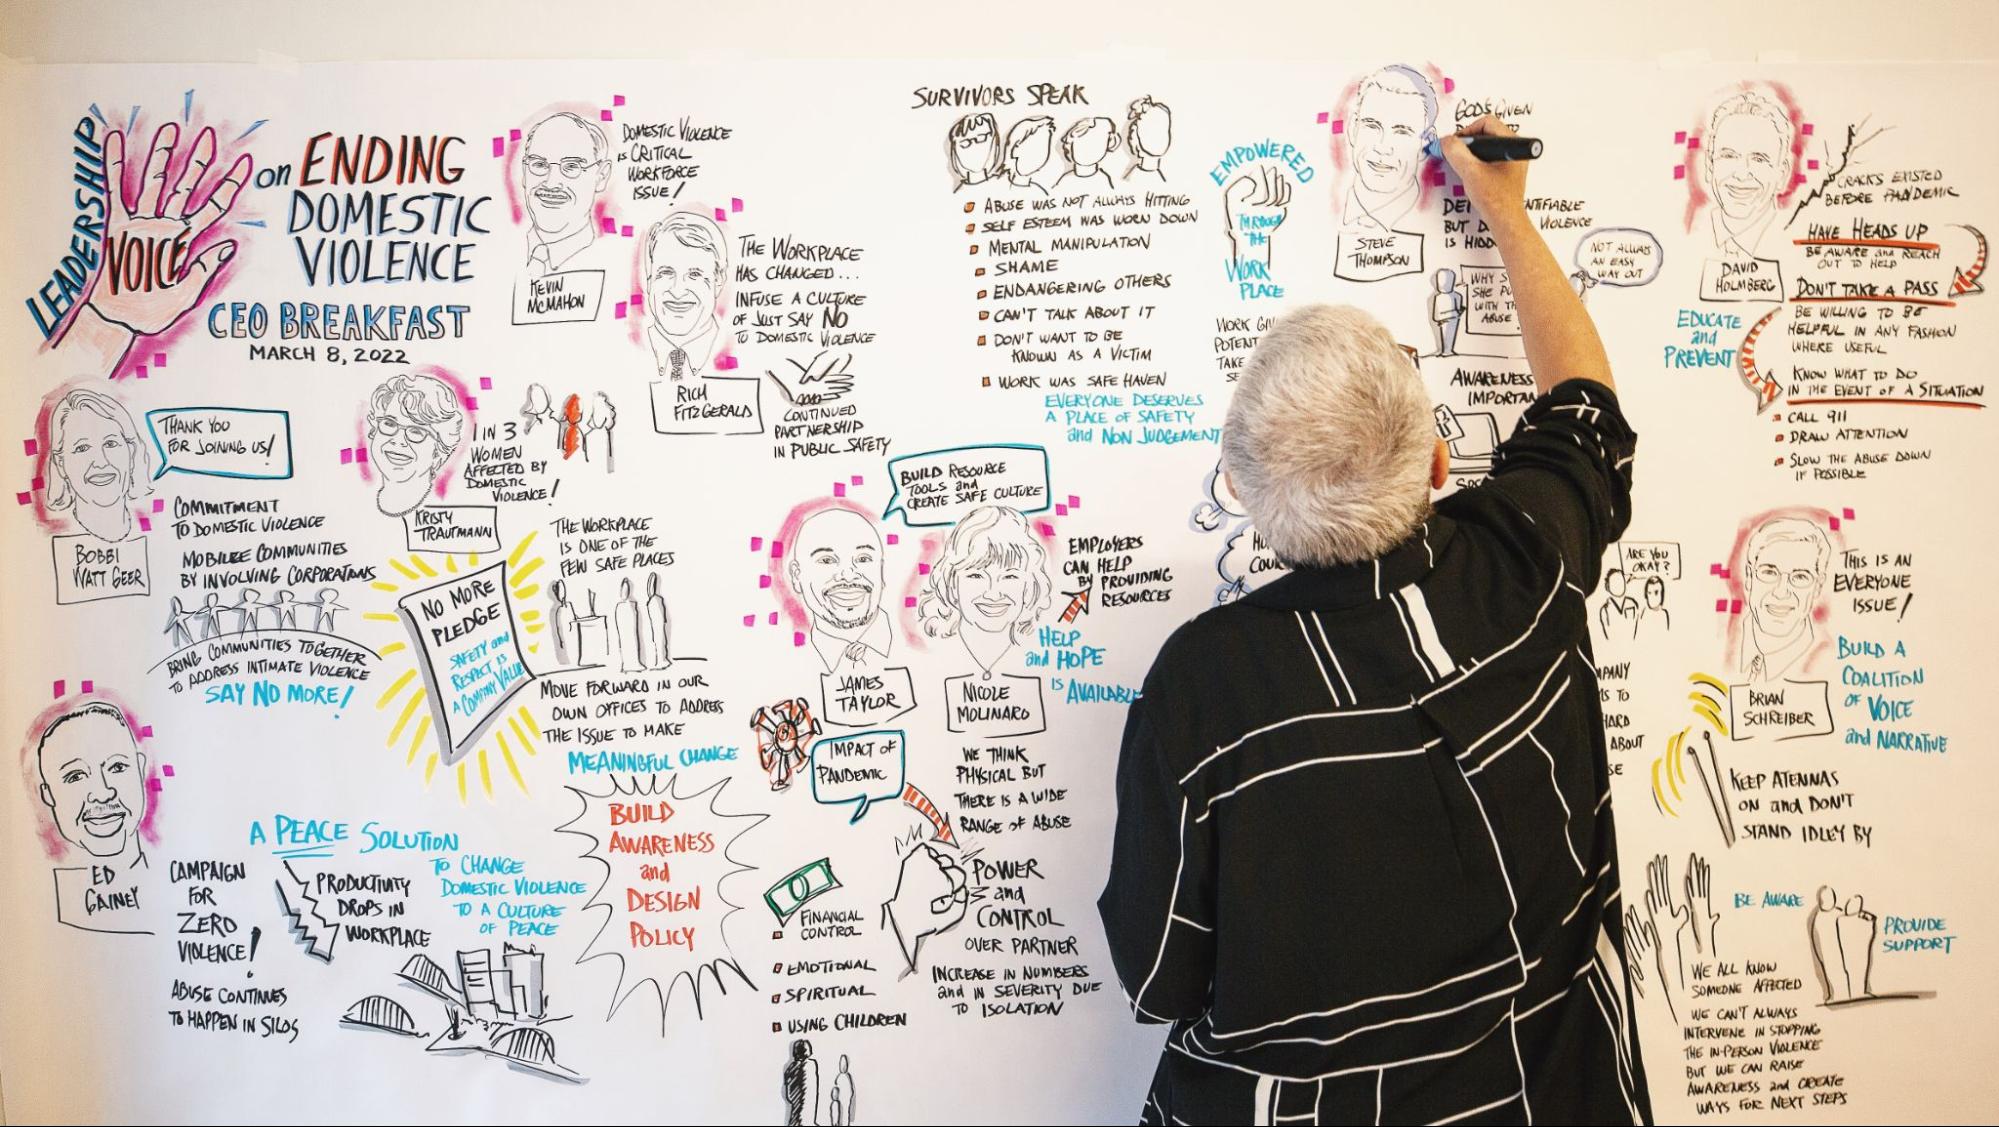 LEADERSHIP
VOICE
on ENDING
DOMESTIC
VIOLENCE
CEO BREAKFAST
MARCH 8, 2022
KEVIN
MCMAHON
DOMESTIC VIOLENCE
IS CRITICAL
WORKFORCE
ISSUE!
RICH
FITZGERALD
THE WORKPLACE
HAS CHANGED...
INFUSE A CULTURE
OF JUST SAY NO
TO DOMESTIC VIOLENCE
CONTINUED
PARTNERSHIP
IN PUBLIC SAFETY
BOBBI
WATT GEER
THANK YOU
FOR JOINING US!
COMMITMENT
TO DOMESTIC VIOLENCE
MOBILIZE COMMUNITIES
BY INVOLVING CORPORATIONS
BRING COMMUNITIES TOGETHER
TO ADDRESS INTIMATE VIOLENCE
SAY NO MORE!
KRISTY
TRAUTMANN
1 IN 3
WOMEN
AFFECTED BY
DOMESTIC
VIOLENCE!
NO MORE
PLEDGE
SAFETY and
RESPECT IS
A COMPANY VALUE
THE WORKPLACE
IS ONE OF THE
FEW SAFE PLACES
MOVE FORWARD IN OUR
OWN OFFICES TO ADDRESS
THE ISSUE TO MAKE
MEANINGFUL CHANGE
ED
GAINEY
CAMPAIGN
FOR
ZERO
VIOLENCE!
ABUSE CONTINUES
TO HAPPEN IN SILOS
A PEACE SOLUTION
PRODUCTIVITY
DROPS IN
WORKPLACE
TO CHANGE
DOMESTIC VIOLENCE
TO A CULTURE
OF PEACE
BUILD
AWARENESS
and
DESIGN
POLICY
SURVIVORS SPEAK
ABUSE WAS NOT ALWAYS HITTING
SELF ESTEEM WAS WORN DOWN
MENTAL MANIPULATION
SHAME
ENDANGERING OTHERS
CAN'T TALK ABOUT IT
DON'T WANT TO BE
KNOWN AS A VICTIM
WORK WAS SAFE HAVEN
EVERYONE DESERVES
A PLACE OF SAFETY
and NON JUDGEMENT
BUILD RESOURCE
TOOLS and
CREATE SAFE CULTURE
JAMES
TAYLOR
NICOLE
MOLINARO
EMPLOYERS
CAN HELP
BY PROVIDING
RESOURCES
HELP
and HOPE
IS AVAILABLE
IMPACT OF
PANDEMIC
WE THINK
PHYSICAL BUT
THERE IS A WIDE
RANGE OF ABUSE
FINANCIAL
CONTROL
EMOTIONAL
SPIRITUAL
USING CHILDREN
POWER
and
CONTROL
OVER PARTNER
INCREASE IN NUMBERS
and IN SEVERITY DUE
TO ISOLATION
EMPOWERED
THROUGH
THE
WORK
PLACE
WORK
TAKE
STEVE
THOMPSON
GOD'S GIVEN
VIOLENCE
BUT
IS
NOT ALWAYS
AN EASY
WAY OUT
WHY
SHE
WITH
ABUSE
AWARENESS
ARE YOU
OKAY?
TO
ABOUT
DAVID
HOLMBERG
CRACKS EXISTED
BEFORE PANDEMIC
HAVE HEADS UP
BE AWARE and REACH
OUT TO HELP
DON'T TAKE A PASS
BE WILLING TO BE
HELPFUL IN ANY FASHION
WHERE USEFUL
EDUCATE
and
PREVENT
KNOW WHAT TO DO
IN THE EVENT OF A SITUATION
CALL 911
DRAW ATTENTION
SLOW THE ABUSE DOWN
IF POSSIBLE
BRIAN
SCHREIBER
THIS IS AN
EVERYONE
ISSUE!
BUILD A
COALITION
OF VOICE
and NARRATIVE
KEEP ATENNAS
ON and DON'T
STAND IDLEY BY
BE AWARE
PROVIDE
SUPPORT
WE ALL KNOW
SOMEONE AFFECTED
WE CAN'T ALWAYS
INTERVENE IN STOPPING
THE IN-PERSON VIOLENCE
BUT WE CAN RAISE
AWARENESS and CREATE
WAYS FOR NEXT STEPS